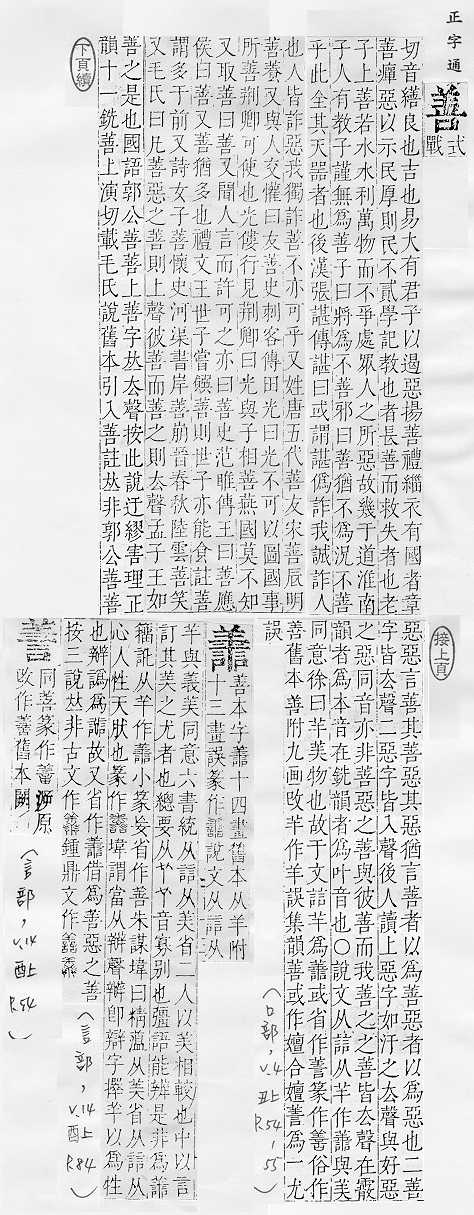 正字通
善 弍戰
切音繕良也吉也易大有君子以遏惡揚善禮緇衣有國者章
善癉惡以示民厚則民不貳學記教也者長善而救失者也老
子上善若水水利萬物而不爭處眾人之所惡故幾于道淮南
子人有教子謹無為善子曰將為不善邪曰善猶不為況不善
乎此全其天器者也後漢張諶傳諶曰或謂諶為詐我誠詐人
也人皆詐惡我獨詐善不亦可乎又姓唐五代善友宋善明
善養又與人交懽曰友善史刺客傳田光曰光不可以圖國事
所善荊卿可使也光僂行見荊卿曰光與子相善燕國莫不知
又取善曰善又聞人言而許可之亦曰善史范睢傳王曰善應
侯曰善又善猶多也禮文王世子嘗饌善則世子亦能食註善
謂多于前又詩女子善懷史河渠書岸善崩晉春秋陸雲善笑
又毛氏曰凡善惡之善則上聲彼善而善之則去聲孟子王如
善之是也國語郭公善善上善字𠀤去聲按此說迂繆害理正
韻十一銑善上演切載毛氏說舊本引入善註𠀤非郭公善善
下頁續
接上頁
惡惡言善其善惡其惡猶言善者以為善惡者以為惡也二善
字皆去聲二惡字皆入聲後人讀上惡字如汙之去聲與好惡
之惡同音亦非善惡之善與彼善而我善之之善皆去聲在霰
韻者為本音在銑韻者為叶音也○說文从誩从羊作譱與美
同意徐曰羊美物也故于文誩羊為譱或省作善篆作譱俗作
善舊本善附九画改羊作羊誤集韻善或作嬗合嬗善為一尤
誤
(口部,v.4 丑上 P.54,55)
譱 善本字譱十四畫舊本从羊附
十三畫誤篆作譱說文从誩从
羊與義美同意六書統从誩从美省二人以美相較也中以言
訂其美之尤者也總要从羊音寡別也彊語能辨是非為譱
籀訛从羊作譱小篆妄省作善朱謀㙔曰精蘊从美省从誩从
心人性天狀也篆作譱㙔謂當从辯聲辯卽辯字擇羊以為牲
也辯譌為誩故又省作譱借為善惡之善
按三說𠀤非古文作譱鍾鼎文作譱譱
(言部,v.14 酉上 P.84)
同善篆作譱原
改作善舊本闕
(言部,v.14 酉上 P.54)